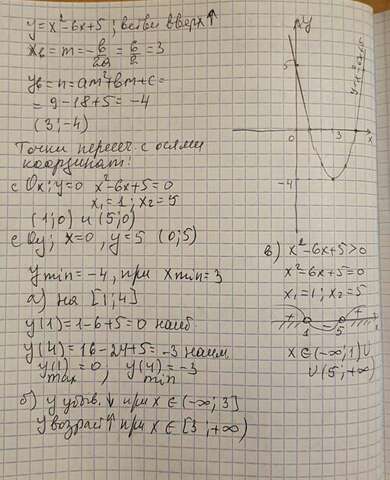 y=x²-6x+5; ветви вверх↑
xв = m = -b/2a = 6/2 = 3
yв = n = am²+bm+c =
= 9-18+5 = -4
(3;-4)
Точки пересеч. с осями
координат:
с Ox: y=0 x²-6x+5=0
x₁=1; x₂=5
(1;0) и (5;0)
с Oy; x=0, y=5 (0;5)
ymin=-4, при xmin=3
а) на [1;4]
y(1)=1-6+5=0 наиб.
y(4)=16-24+5=-3 наим.
y(1)=0; y(4)=-3
max min
б) y убыв.↓ при x∈(-∞;3]
y возраст↑ при x∈[3;+∞)
y
5
0
3
x
-4
y=x²-6x+5
в) x²-6x+5>0
x²-6x+5=0
x₁=1; x₂=5
+ - +
1 5
x∈(-∞;1)∪
∪(5;+∞)